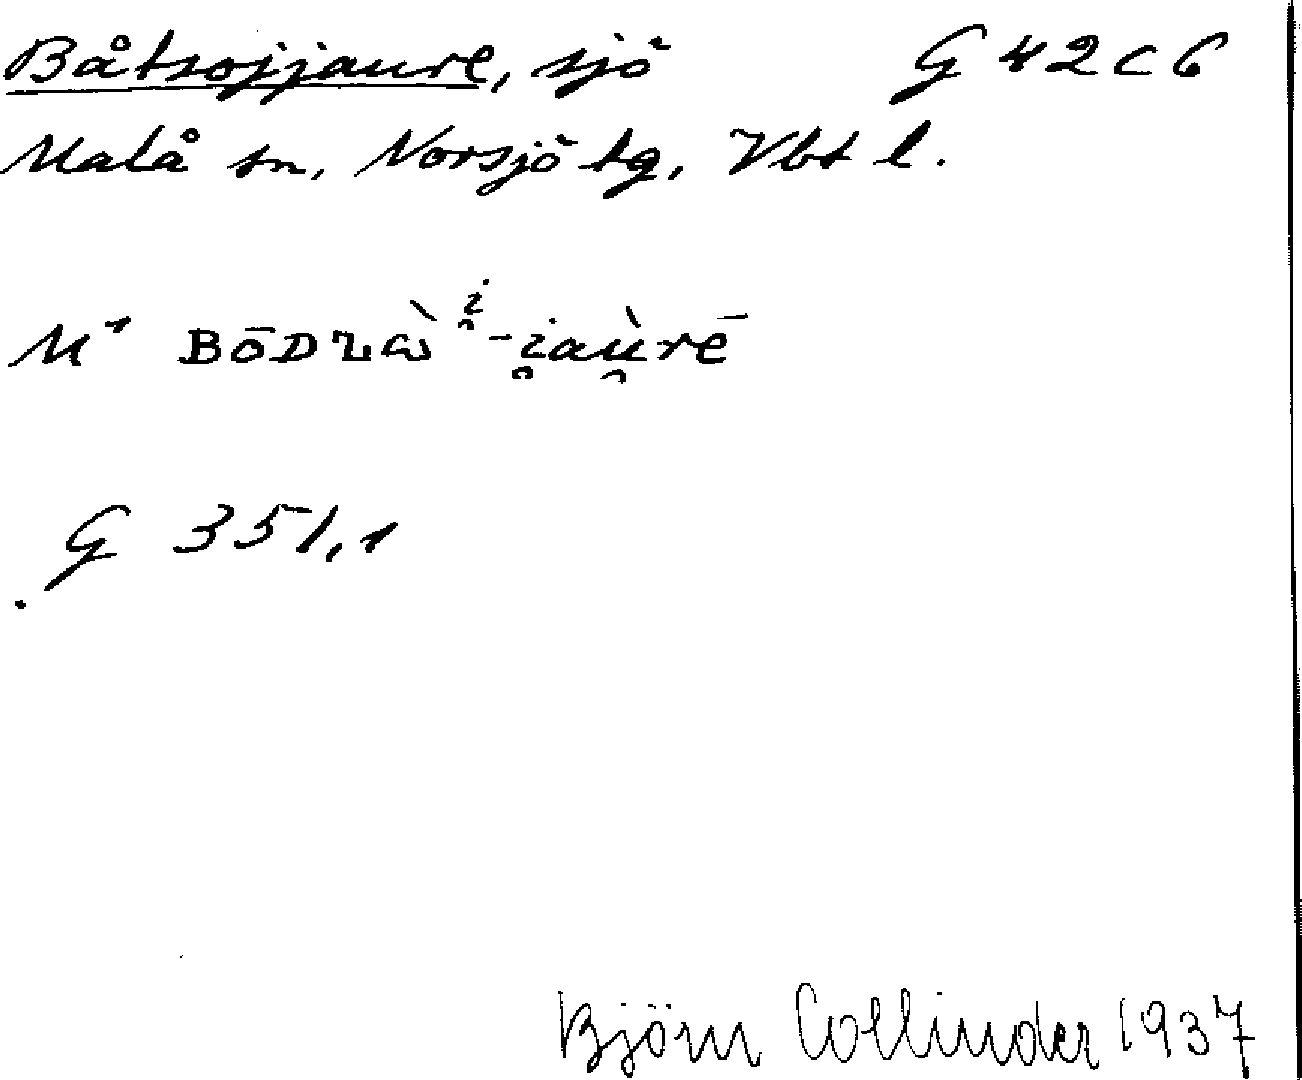 Båtsojjaure, sjö G 42 c 6
Malå sn, Norsjö tg, Vbt l.
G 351,1
Björn Collinder 1937